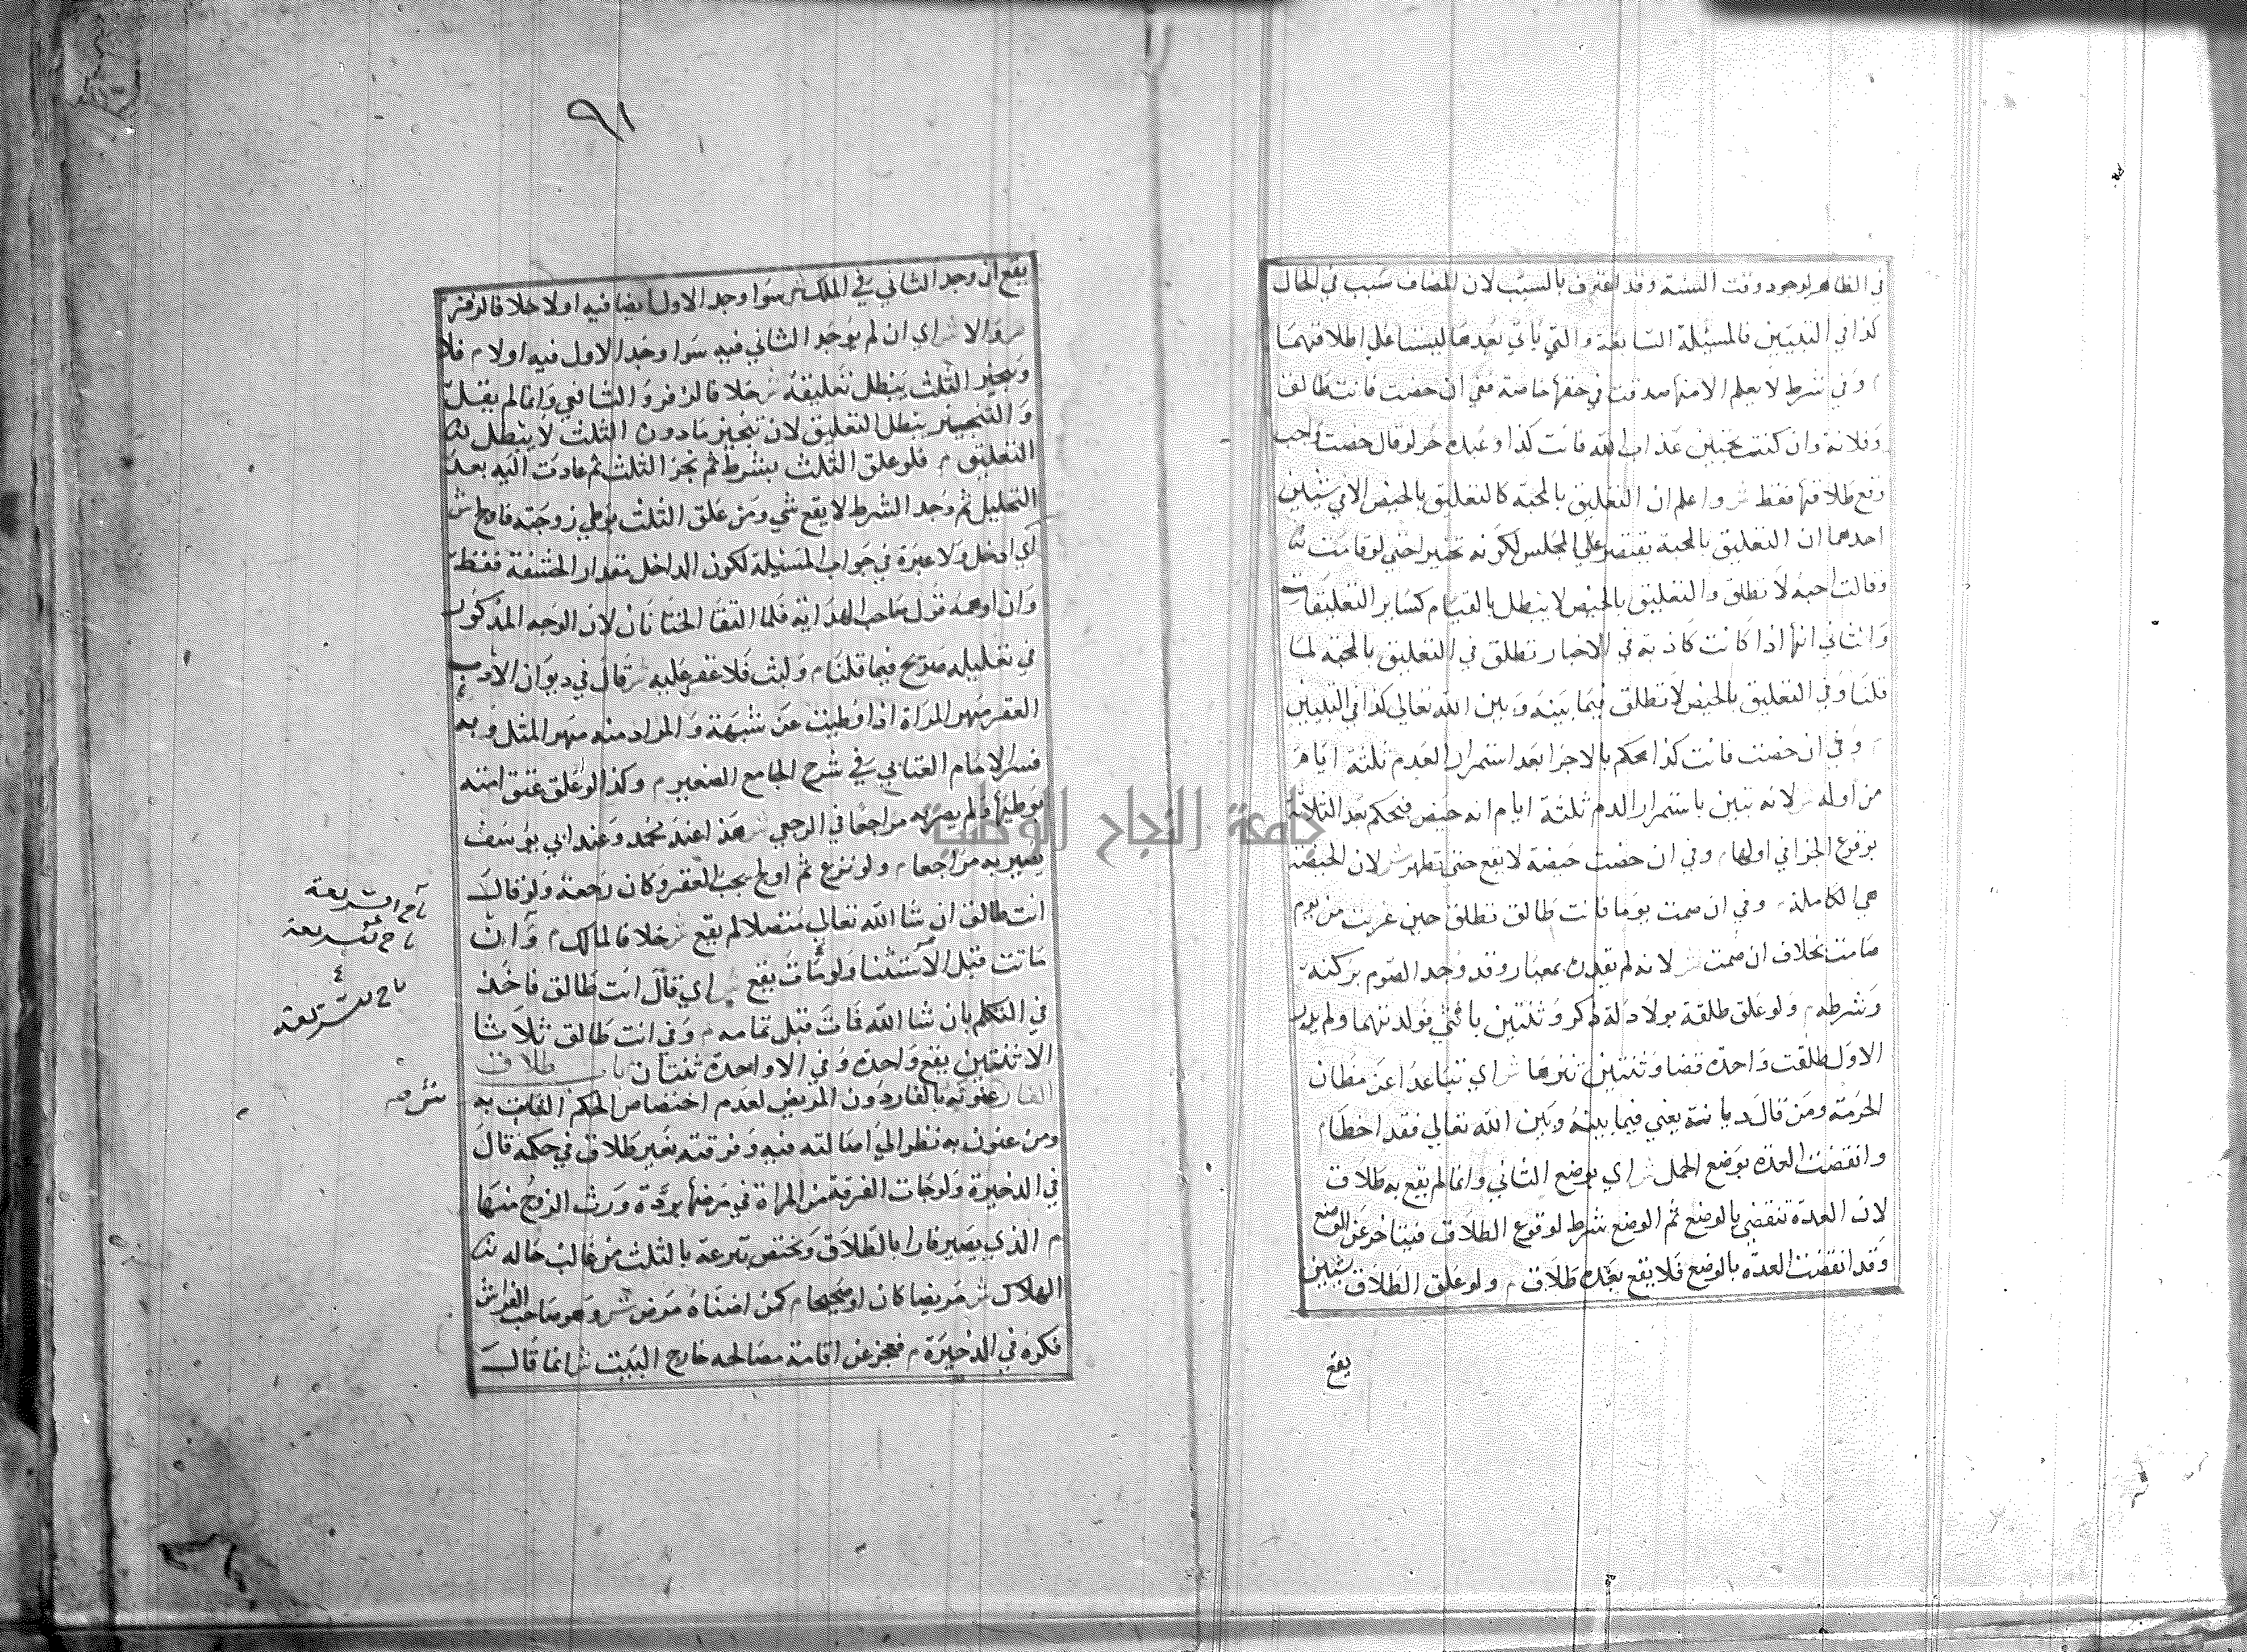 في الظاهر لوجود وقت السنة وقد اقترن بالسبب لان المضاف سبب في الحال
كذا في التبيين فالمسئلة السابقة والتي يأتي بعدها ليستا علي اطلاقهما
م وفي شرط لا يعلم الا منها صدقت في حقها خاصة ففي ان حضت فانت طالق
وفلانة وان كنت تحبين عذاب الله فانت كذا وعبده حر لو قال حضت واحب
وقع طلاقها فقط ش واعلم ان التعليق بالمحبة كالتعليق بالحيض الا في شيئين
احدهما ان التعليق بالمحبة يقتصر علي المجلس لكونه تخييرا حتي لو قامت
وقالت احبه لا تطلق والتعليق بالحيض لا يبطل بالقيام كسائر التعليقات
والثاني انها اذا كانت كاذبة في الاخبار تطلق في التعليق بالمحبة لما
قلنا وفي التعليق بالحيض لا تطلق فيما بينه وبين الله تعالي كذا في التبيين
م وفي ان حضت فانت كذا يحكم بالاجزا بعد استمرار الدم ثلثة ايام
من اوله ش لانه تبين باستمرار الدم ثلثة ايام انه حيض فيحكم بعد الثلاثة
بوقوع الجزا في اولها م وفي ان حضت حيضة لا يقع حتي تطهر ش لان الحيضة
هي الكاملة م وفي ان صمت يوما فانت طالق تطلق حين غربت من يوم
صامت بخلاف ان صمت ش لانه لم يقدره بمعيار وقد وجد الصوم بركنه
وشرطه م ولو علق طلقة بولادة ذكر وثنتين بانثي فولدتهما ولم يدر
الاول طلقت واحدة قضا وثنتين تنزها ش اي تباعدا عن مظان
الحرمة ومن قال ديانة يعني فيما بينه وبين الله تعالي فقد اخطا م
وانقضت العدة بوضع الحمل ش اي بوضع الثاني وانما لم يقع به طلاق
لان العدة تنقضي بالوضع ثم الوضع شرط لوقوع الطلاق فيتاخر عن الوضع
وقد انقضت العدة بالوضع فلا يقع بعده طلاق م ولو علق الطلاق بشيئين
يقع
٩١
يقع ان وجد الثاني في الملك ش سوا وجد الاول ايضا فيه اولا خلافا لزفر
م والا ش اي ان لم يوجد الثاني فيه سوا وجد الاول فيه اولا م فلا
وتنجيز الثلث يبطل تعليقه ش خلافا لزفر والشافعي وانما لم يقل
والتنجيز يبطل التعليق لان تنجيز ما دون الثلث لا يبطل
التعليق م فلو علق الثلث بشرط ثم نجز الثلث ثم عادت اليه بعد
التحليل ثم وجد الشرط لا يقع شي ومن علق الثلث بوطي زوجته فاولج ش
اي ادخل ولا عبرة في جواب المسئلة لكون الداخل مقدار الحشفة فقط
وان اوهمه قول صاحب الهداية فلما التقا الختانان لان الوجه المذكور
في تعليله صريح فيما قلنا م ولبث فلا عقر عليه ش قال في ديوان الادب
العقر مهر المراة اذا وطيت عن شبهة والمراد منه مهر المثل وبه
فسر الامام العتابي في شرح الجامع الصغير م وكذا لو علق عتق امته
بوطيها ولم يصر به مراجعا في الرجعي ش هذا عند محمد وعند ابي يوسف
يصير به مراجعا م ولو نزع ثم اولج يجب العقر وكان رجعة ولو قال
انت طالق ان شا الله تعالي متصلا لم يقع ش خلافا لمالك م وان
ماتت قبل الاستثنا ولو مات يقع ش اي قال انت طالق فاخذ
في التكلم بان شا الله فمات قبل تمامه م وفي انت طالق ثلاثا
الا ثنتين يقع واحدة وفي الا واحدة ثنتان باب طلاق
الفار عنونه بالفار دون المريض لعدم اختصاص الحكم الفايت به
ومن عنون به نظر الي اصالته فيه وفرقته بغير طلاق في حكمه قال
في الذخيرة ولو جات الفرقة من المراة في مرضها بردة ورث الزوج منها
م الذي يصير فارا بالطلاق ويختص تبرعه بالثلث من غالب حاله
الهلاك ش مريضا كان او صحيحا م كمن اضناه مرض ش وهو صاحب الفراش
ذكره في الذخيرة م فعجز عن اقامة مصالحه خارج البيت ش انما قال
تاج الشريعة
تاج الشريعة
تاج الشريعة
جامعة النجاح الوطنية